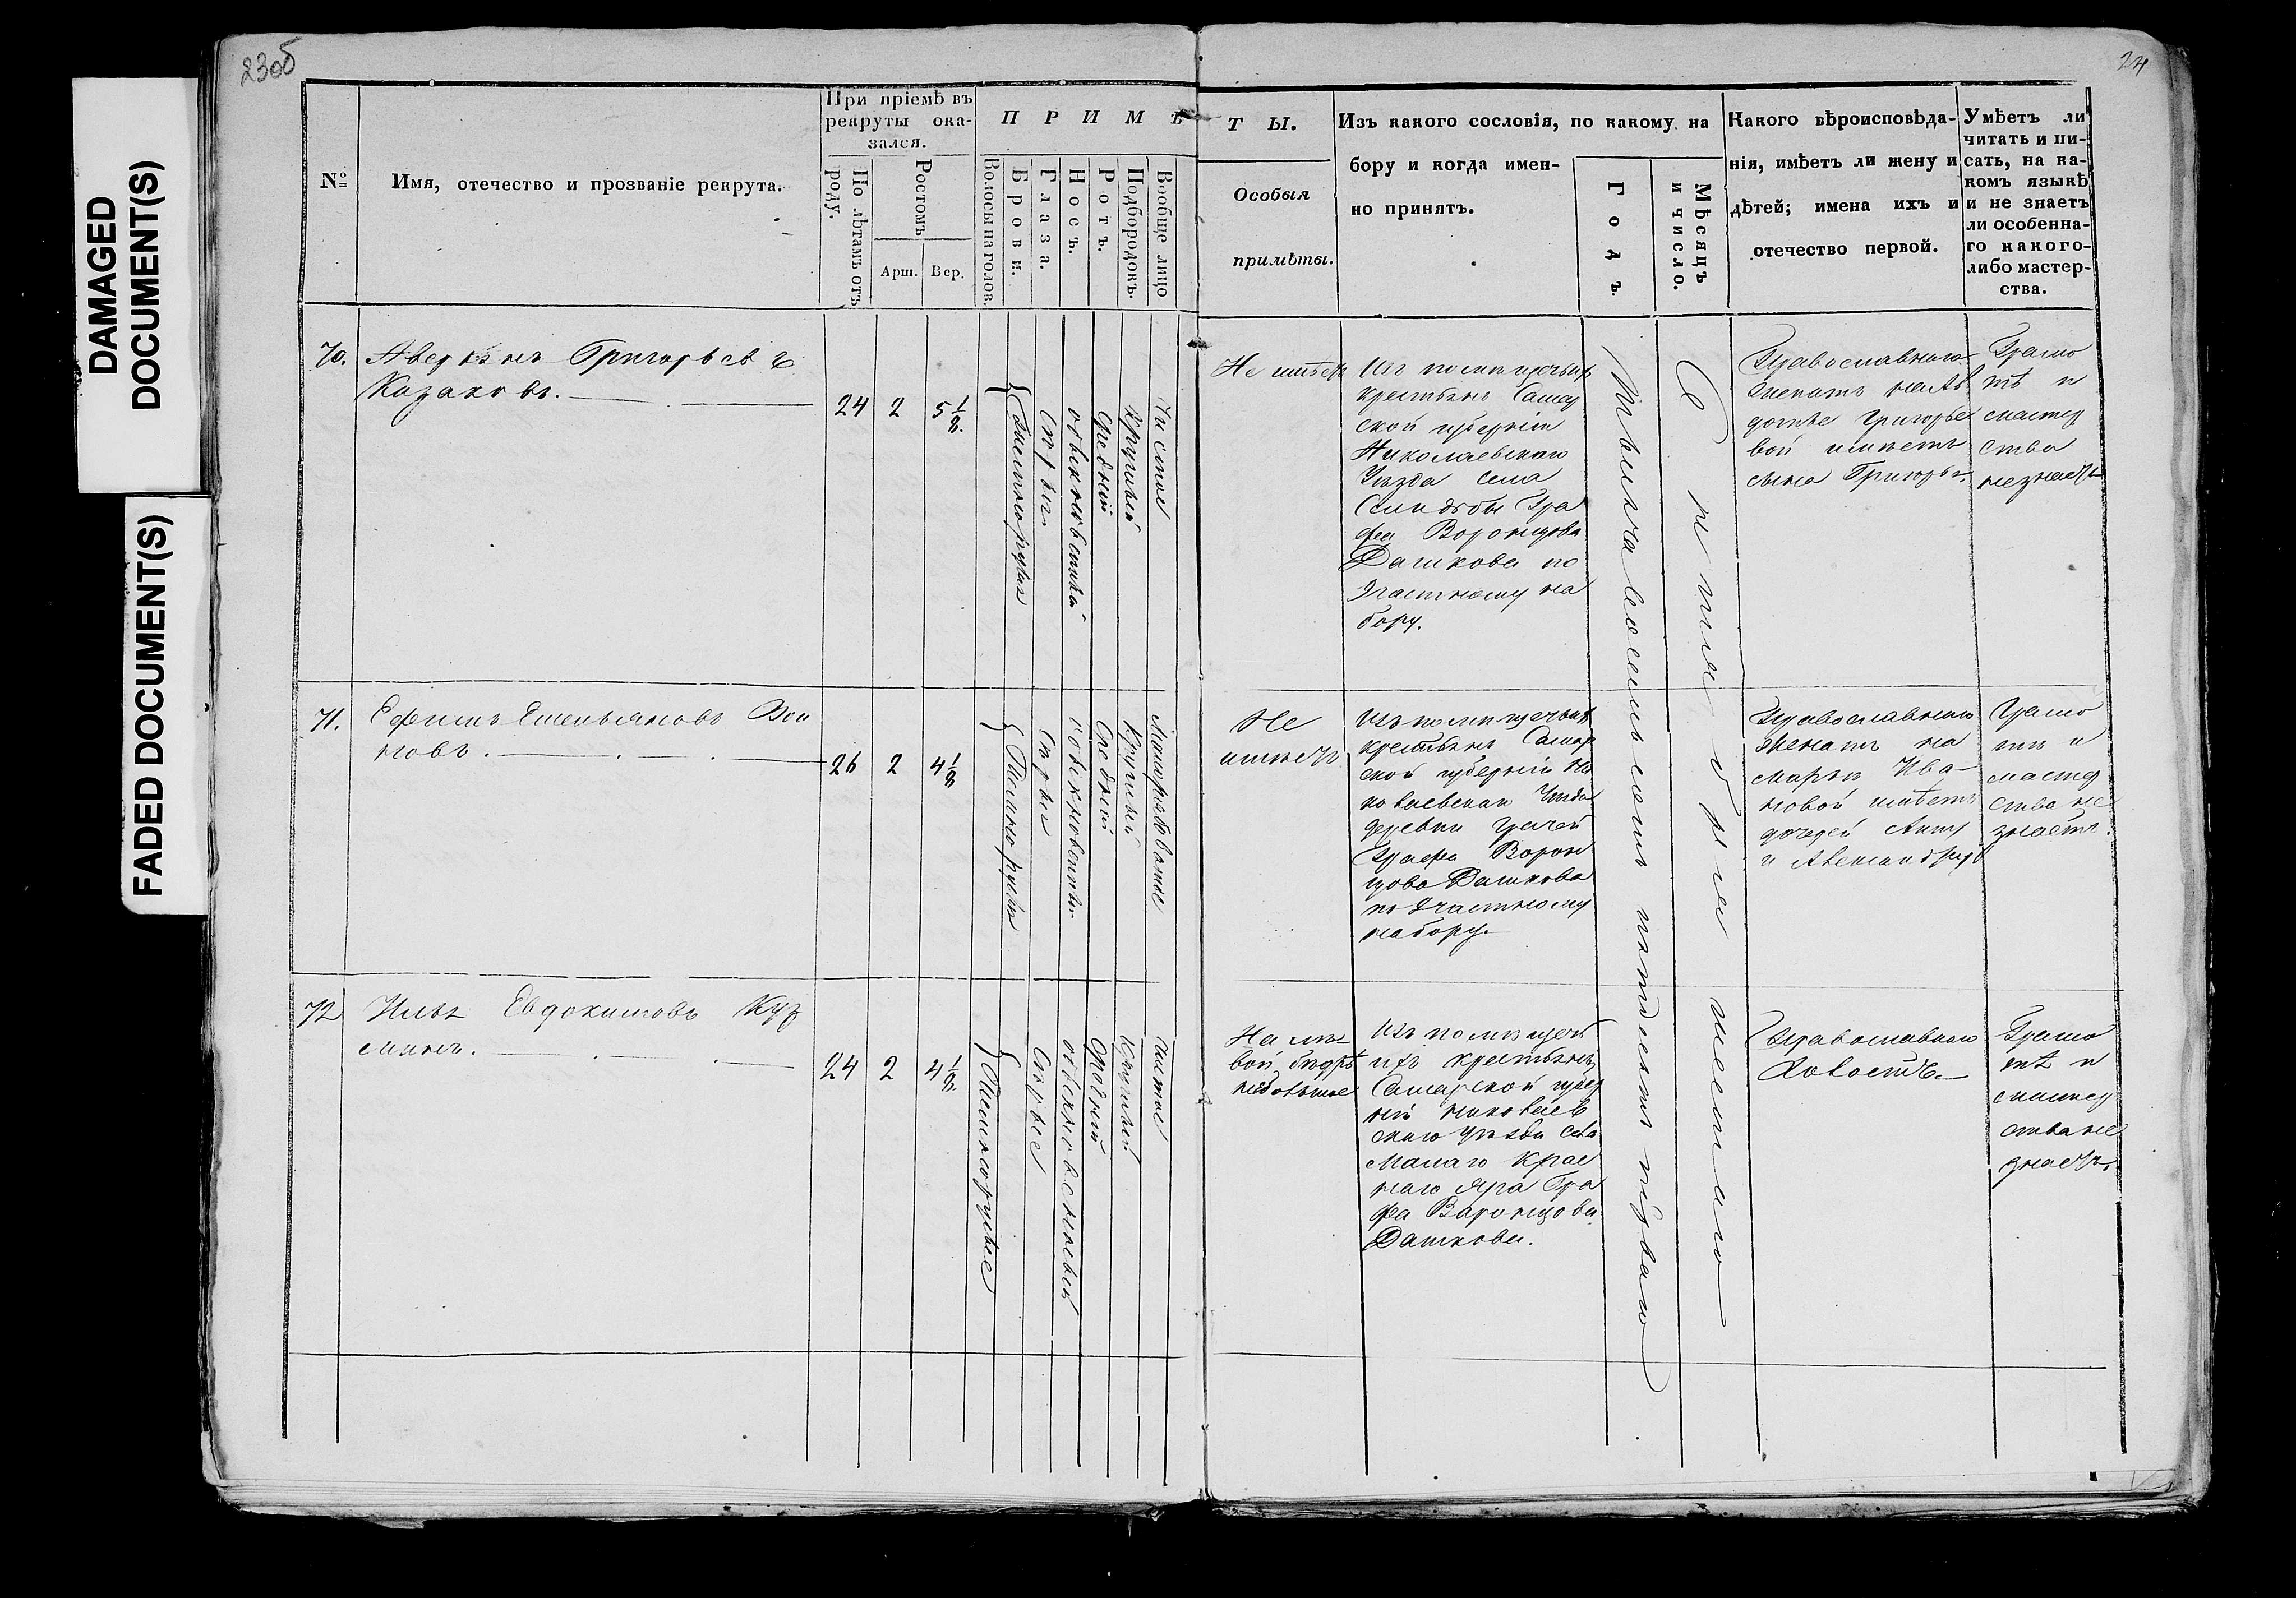 DAMAGED
DOCUMENT(S)
FADED DOCUMENT(S)
23об
24
№
Имя, отечество и прозваніе рекрута.
При пріемѣ въ
рекруты ока-
зался.
По лѣтамъ отъ
роду.
Ростомъ
Арш.
Вер.
П Р И М Ѣ
Волосы на голов.
Брови.
Глаза.
Носъ.
Ротъ.
Подбородокъ.
Вообще лицо
Т Ы.
Особыя
примѣты.
Изъ какого сословія, по какому на
бору и когда имен-
но принятъ.
Годъ.
Мѣсяцъ
и число.
Какого вѣроисповѣда-
нія, имѣетъ ли жену и
дѣтей; имена ихъ и
отечество первой.
Умѣетъ ли
читать и пи-
сать, на ка-
комъ языкѣ
и не знаетъ
ли особенна-
го какого-
либо мастер-
ства.
70.
Григорьевъ
Казаковъ.
24
2
5 1/8.
Темнорусыя
Сѣрыя
обыкновенный
средній
круглый
Чистое
Не имѣетъ
Изъ помѣщичьихъ
крестьянъ Самар
ской губерніи
Николаевскаго
Уѣзда села
Гра
фа Воронцова
Дашкова по
частному на
бору.
Тысяча восемьсотъ пятьдесятъ перваго
Сентября шестаго
Православнаго
Женатъ на Ав
дотье Григорье
вой имѣетъ
сына Григорья.
Грамо
тѣ и
мастер
ства
незнаетъ
71.
Ефимъ Емельяновъ Вои
новъ.
26
2
4 1/8
Темнорусыя
Сѣрыя
обыкновенный
Средній
Круглый
Не
имѣетъ
Изъ помѣщичьихъ
крестьянъ Самар
ской губерніи Ни
колаевскаго Уѣзда
деревни Грачей
Графа Ворон
цова Дашкова
по частному
набору.
Православнаго
женатъ на
Марьѣ Ива-
новой имѣетъ
дочерей Анну
и Александру
Грамо
тѣ и
мастер
ства не
знаетъ.
72
Илья Евдокимовъ Куз
минъ.
24
2
4 1/8.
Темнорусые
Сѣрые
обыкновенный
Средній
Круглый
чистое
На лѣ
вой бедрѣ
небольшое
Изъ помѣщичь
ихъ крестьянъ
Самарской губер
ніи николаев
скаго уѣзда села
Малаго Крас
наго Яра Гра
фа Варонцова
Дашкова.
Православнаго
Холостъ.
Грамо
тѣ и
мастер
ства не
знаетъ.